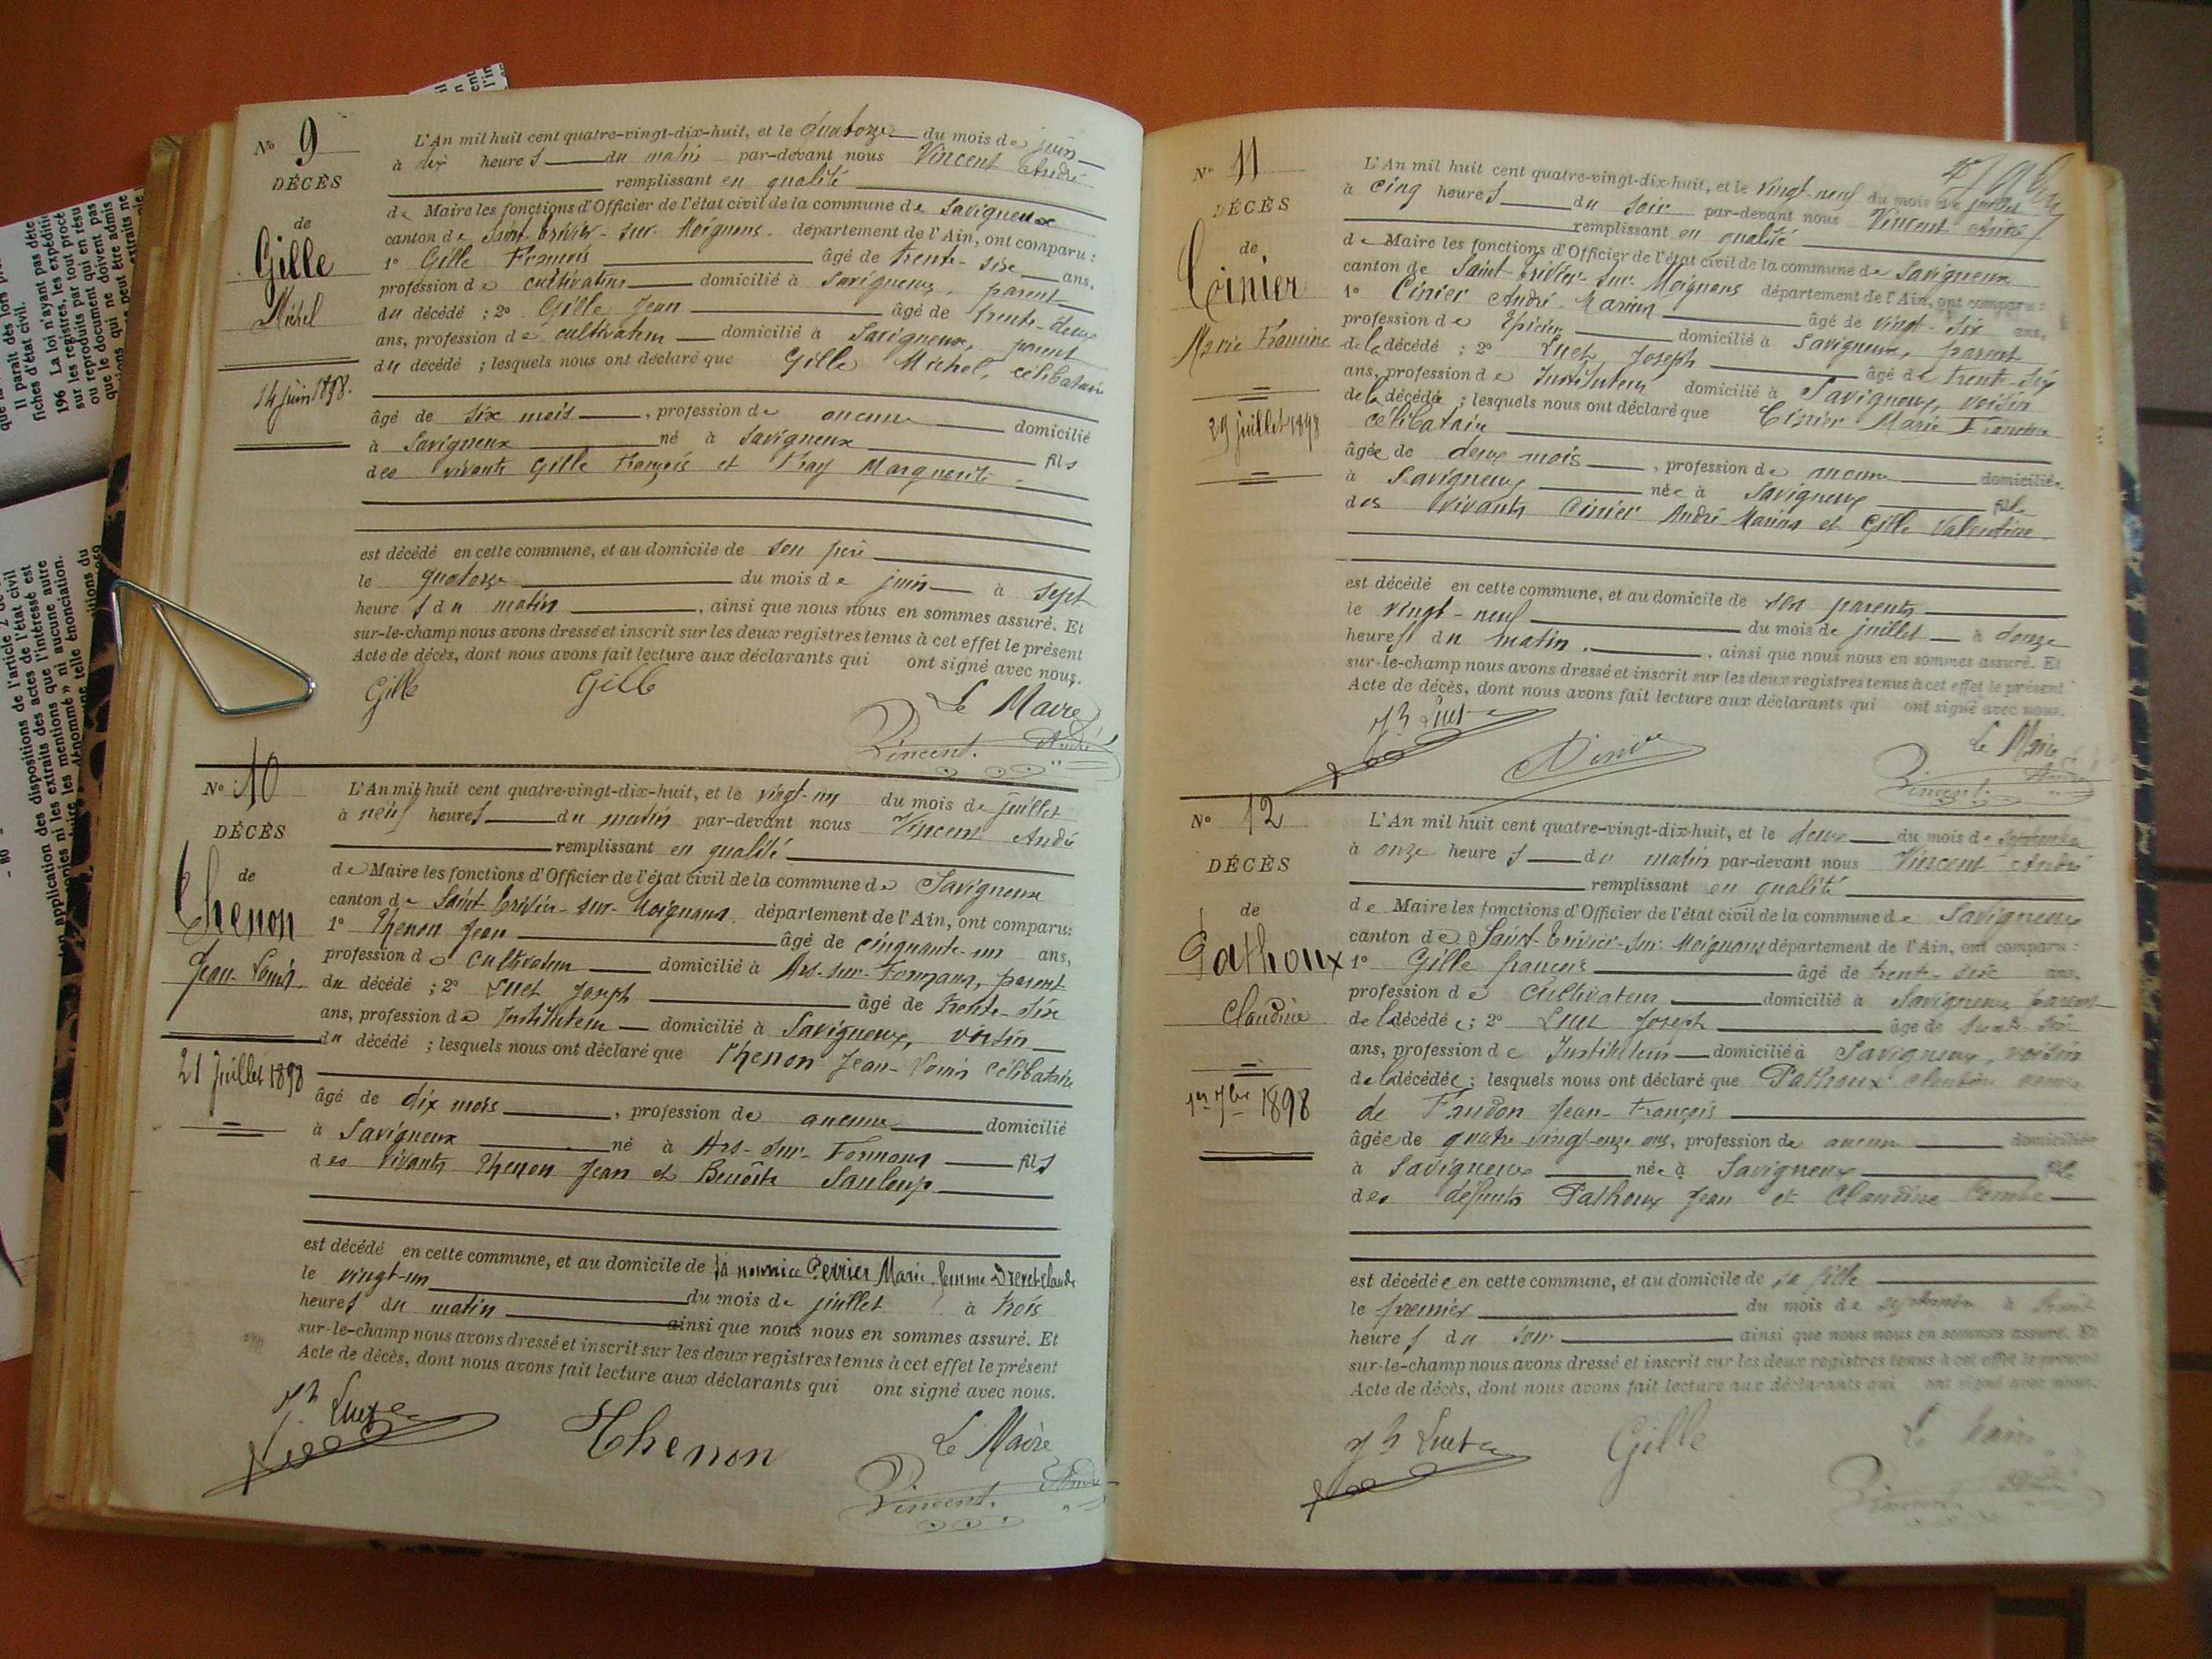 No 9
DÉCÈS
de
Gille
Michel
14 juin 1898.
L'An mil huit cent quatre-vingt-dix-huit, et le quatorze du mois de juin
à dix heures du matin par-devant nous Vincent André
remplissant en qualité
de Maire les fonctions d'Officier de l'état civil de la commune de Savigneux
canton de Saint-trivier-sur-Moignans. département de l'Ain, ont comparu :
1° Gille François âgé de trente-six ans,
profession de cultivateur domicilié à Savigneux, parent
du décédé ; 2° Gille Jean âgé de trente-deux
ans, profession de cultivateur domicilié à Savigneux, parent
du décédé ; lesquels nous ont déclaré que Gille Michel, célibataire
âgé de six mois, profession de aucune domicilié
à Savigneux né à Savigneux fils
des vivants Gille François et Fray Marguerite
est décédé en cette commune, et au domicile de son père
le quatorze du mois de juin à sept
heures du matin, ainsi que nous nous en sommes assuré. Et
sur-le-champ nous avons dressé et inscrit sur les deux registres tenus à cet effet le présent
Acte de décès, dont nous avons fait lecture aux déclarants qui ont signé avec nous.
Gille Gille
Le Maire
Vincent. André
No 10
DÉCÈS
de
Thenon
Jean-Louis
21 Juillet 1898
L'An mil huit cent quatre-vingt-dix-huit, et le vingt-un du mois de juillet
à neuf heures du matin par-devant nous Vincent André
remplissant en qualité
de Maire les fonctions d'Officier de l'état civil de la commune de Savigneux
canton de Saint trivier-sur-Moignans département de l'Ain, ont comparu:
1° Thenon Jean âgé de cinquante-un ans,
profession de cultivateur domicilié à Ars-sur-Formans, parent
du décédé ; 2° Luet Joseph âgé de trente-six
ans, profession de Instituteur domicilié à Savigneux, voisin
du décédé ; lesquels nous ont déclaré que Thenon Jean-Louis célibataire
âgé de dix mois, profession de aucune domicilié
à Savigneux né à Ars-sur-Formans fils
des vivants Thenon Jean et Benoîte Sauloup
est décédé en cette commune, et au domicile de sa nourrice Perrier Marie, femme Drevet Claude
le vingt-un du mois de juillet à trois
heures du matin ainsi que nous nous en sommes assuré. Et
sur-le-champ nous avons dressé et inscrit sur les deux registres tenus à cet effet le présent
Acte de décès, dont nous avons fait lecture aux déclarants qui ont signé avec nous.
Jh Luet Thenon
Le Maire
Vincent. André
No 11
DÉCÈS
de
Cinier
Marie Francine
29 juillet 1898
L'An mil huit cent quatre-vingt-dix-huit, et le vingt-neuf du mois de juillet
à cinq heures du soir par-devant nous Vincent André
remplissant en qualité
de Maire les fonctions d'Officier de l'état civil de la commune de Savigneux
canton de Saint-trivier-sur-Moignans département de l'Ain, ont comparu :
1° Cinier André-Marius âgé de vingt-six ans,
profession de épicier domicilié à Savigneux, parent
de la décédé ; 2° Luet Joseph âgé de trente-six
ans, profession de Instituteur domicilié à Savigneux, voisin
de la décédée ; lesquels nous ont déclaré que Cinier Marie Francine
célibataire
âgée de deux mois, profession de aucune domiciliée
à Savigneux née à Savigneux fille
des vivants Cinier André Marius et Gille Valentine
est décédé en cette commune, et au domicile de ses parents
le vingt-neuf du mois de juillet à douze
heures du matin, ainsi que nous nous en sommes assuré. Et
sur-le-champ nous avons dressé et inscrit sur les deux registres tenus à cet effet le présent
Acte de décès, dont nous avons fait lecture aux déclarants qui ont signé avec nous.
Jh Luet
Le Maire
Vincent. André
No 12
DÉCÈS
de
Pathoux
Claudine
1er 7bre 1898
L'An mil huit cent quatre-vingt-dix-huit, et le deux du mois de septembre
à onze heures du matin par-devant nous Vincent André
remplissant en qualité
de Maire les fonctions d'Officier de l'état civil de la commune de Savigneux
canton de Saint-trivier-sur-Moignans département de l'Ain, ont comparu :
1° Gille françois âgé de trente-six ans,
profession de Cultivateur domicilié à Savigneux parent
de la décédée ; 2° Luet Joseph âgé de trente-six
ans, profession de Instituteur domicilié à Savigneux, voisin
de la décédée ; lesquels nous ont déclaré que Pathoux Claudine veuve
de Frudon Jean-François
âgée de quatre-vingt-onze ans, profession de aucune domiciliée
à Savigneux née à Savigneux fille
des défunts Pathoux Jean et Claudine Combe
est décédée en cette commune, et au domicile de sa fille
le premier du mois de septembre à
heures du soir ainsi que nous nous en sommes assuré. Et
sur-le-champ nous avons dressé et inscrit sur les deux registres tenus à cet effet le présent
Acte de décès, dont nous avons fait lecture aux déclarants qui ont signé avec nous.
Jh Luet Gille
Le Maire
Vincent. André